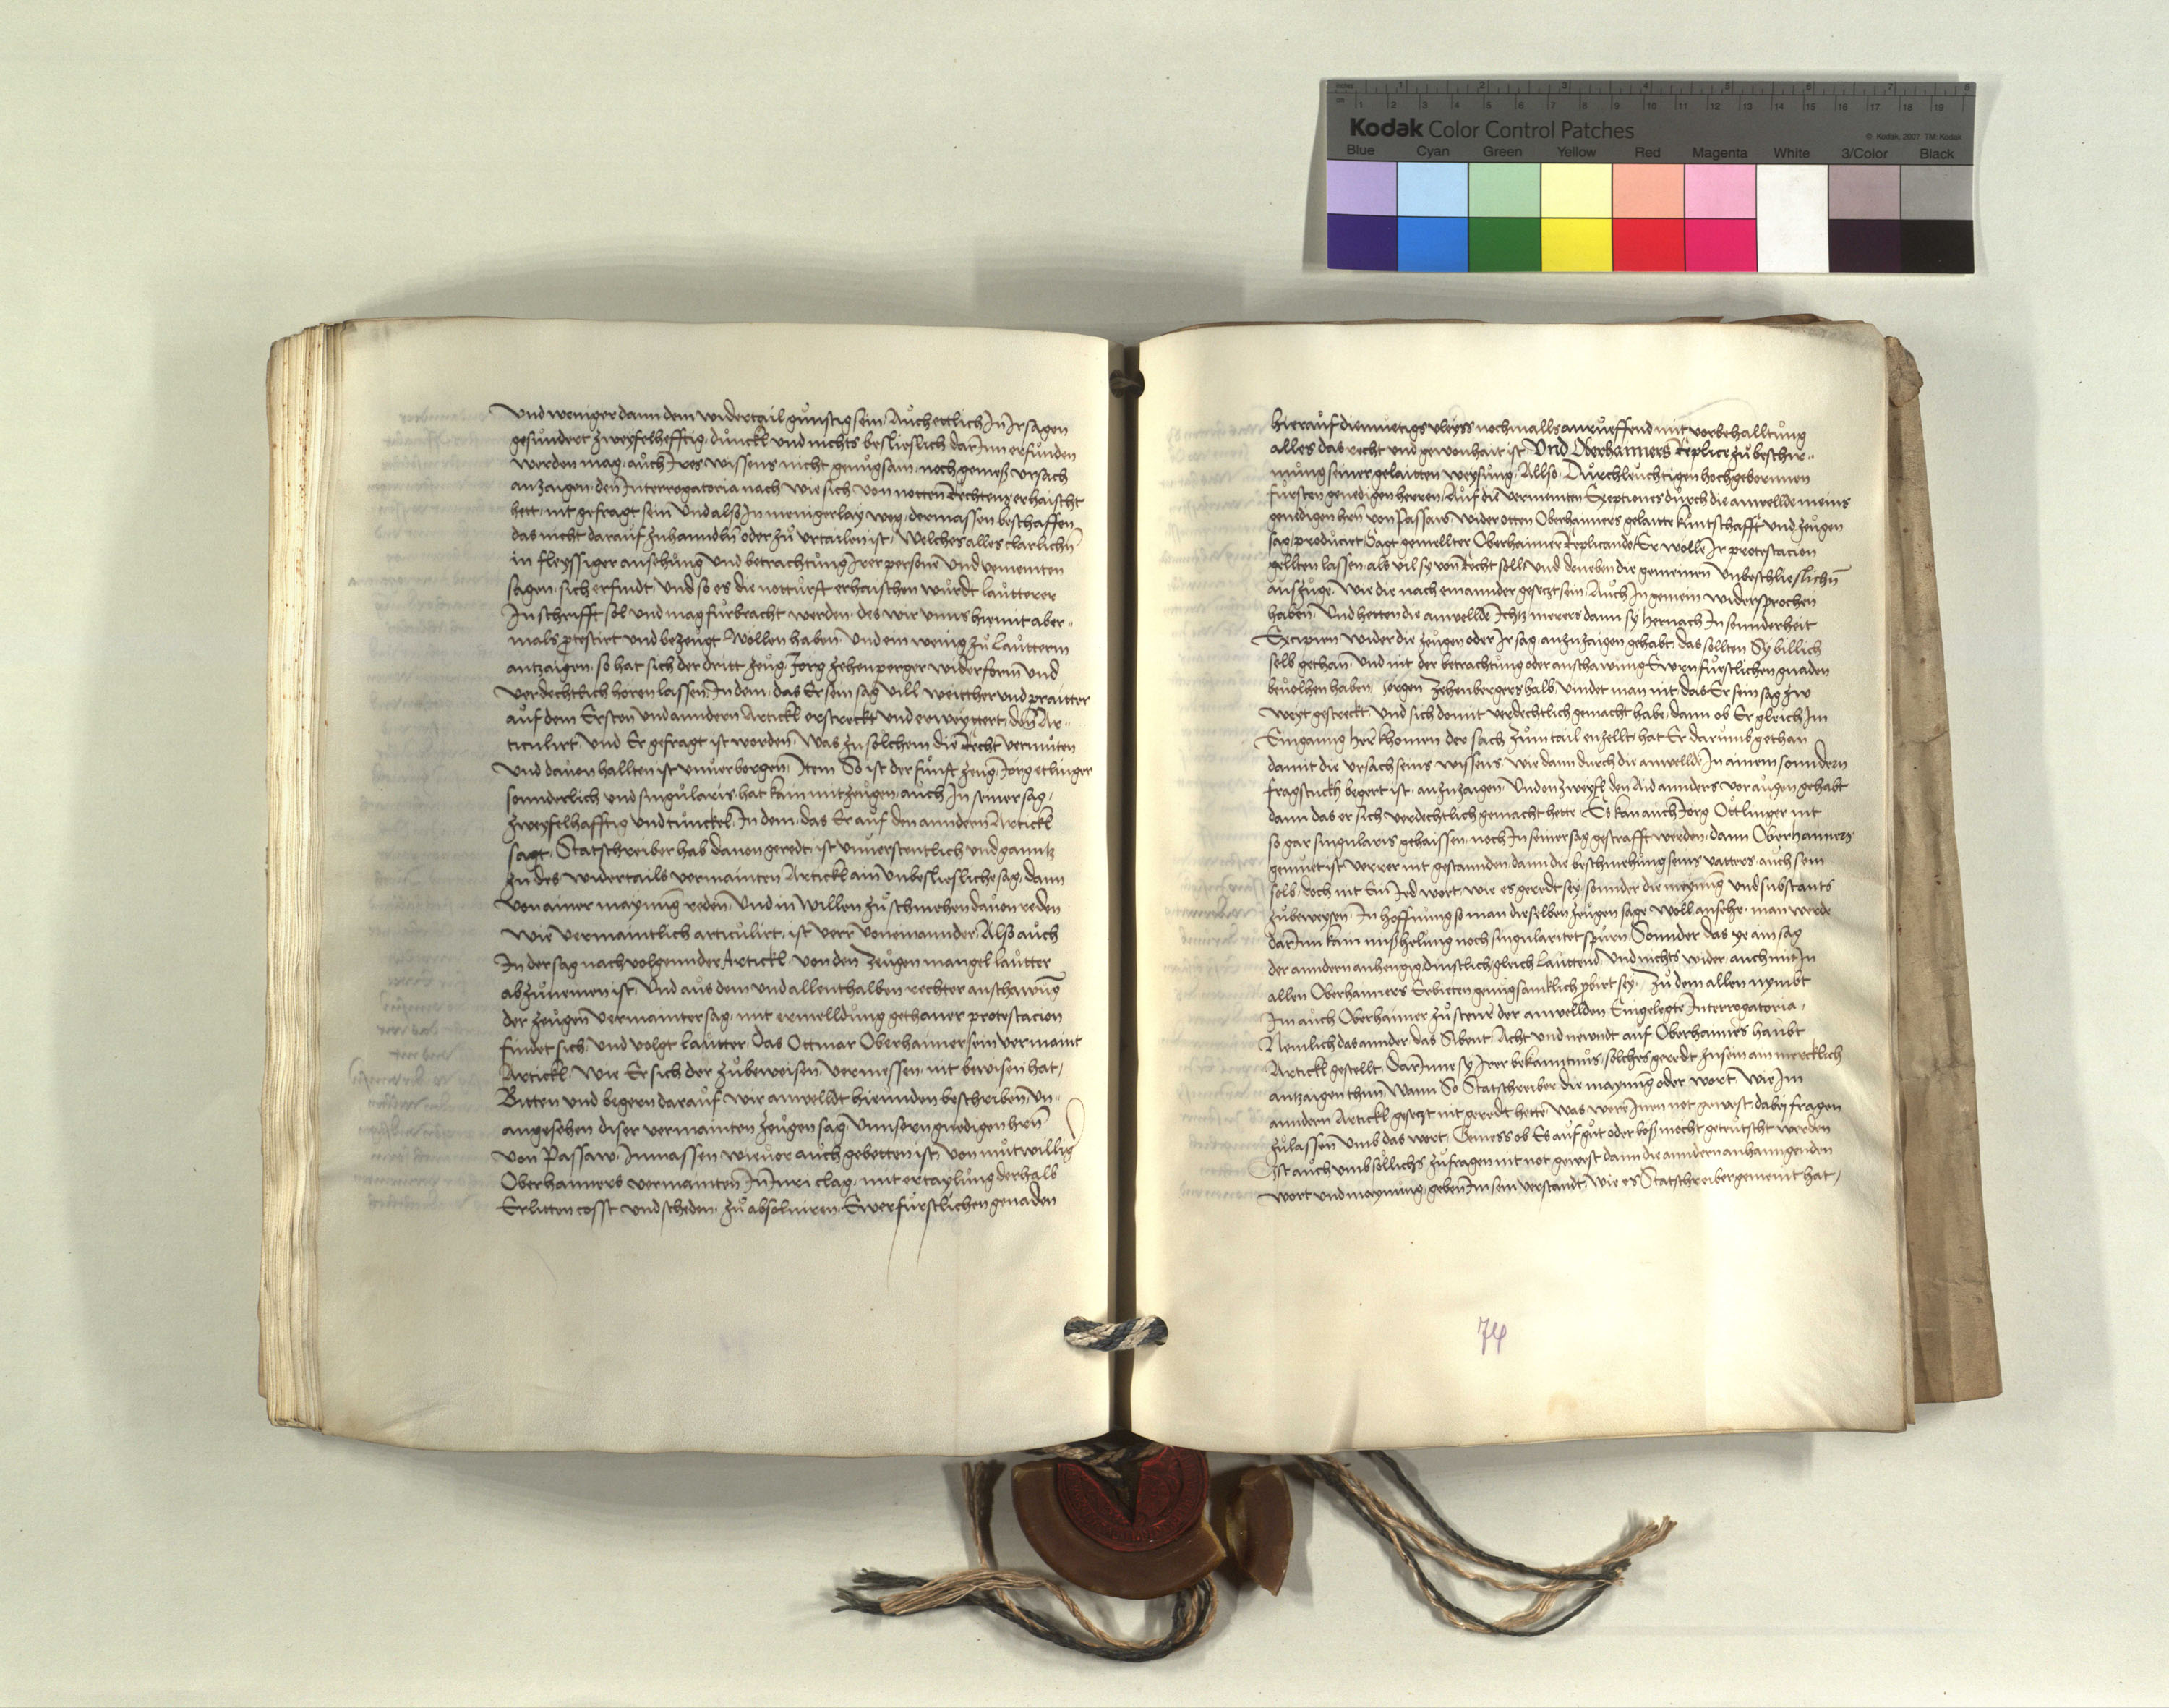 Und weniger dann dem widertail gunstig sein Auch ettlich In Ir sagen
gesundert zweyfelhefftig dunckl und nichts beslieslich darInn erfunden
werden mag auch Ires wissens nicht genugsam noch gemeß ursach
anzaigen den Interrogatoria nach wie sich von notten Rechtens erhaischt
hett nit gefragt sein Und also In menigerlay weg dermassen beschaffen
das nicht darauf zuhanndln oder zu urtailen ist Welches alles clarlichn
in fleyssiger ansehung und betrachtung Irer personen und vermeinten
sagen sich erfindt Und so es die notturft erhaischen wurdt lautterer
In schrifft sol und mag furbracht werden des wir unns hiemit aber-
mals protestirt und bezeugt wollen haben Und ein wenig zu Lautterm
antzaigen so hat sich der dritt zeug Jorg zehenperger widerform und
verdechtlich horen lassen In dem das Er sein sag vill weitther und praitter
auf dem Ersten und anndern Artickl erstreckt und erweyttert den Ar-
ticulirt Und Er gefragt ist worden Was zu solchem die Recht vermuten
Und dauon hallten ist unuerborgen Item So ist der funft zeug Jorg etlinger
sonnderlich und singularis hat kain mitzeugen auch In seiner sag
zweyfelhafftig und tunckel In dem das Er auf den anndern Artickl
sagt Statschreiber hab dauon geredt ist unuerstentlich und ganntz
zu des widertails vermainten Artickl ain unbesliesliche sag dann
von ainer maynung reden Und in willen zu schmehen dauon reden
wie vermaintlich articulirt ist verr voneinannder Also auch
In der sag nachvolgennder Artickl von den zeugen mangel lautter
abzunemen ist Und aus dem und allenthalben rechter anschawung
der zeugen vermainter sag mit ermelldung gethaner protestacion
findet sich und volgt lautter Das Ottmar Oberhaimer sein vermaint
Artickl wie Er sich der zubeweisen vermessen nit bewisen hat
Bitten und begern darauf wir anwelldt hieunden beschriben Un-
angesehen diser vermainten zeugen sag Unnsern gnedigen hern
von Passaw Inmassen wieuor auch gebetten ist von mutwillig
Oberhaimers vermainten In Inri clag mit ertaylung derhalb
Erlitten cosst und scheden zu absoluiren Ewer furstlichen genaden
hierauf diemuetigs vleyss nochmalls anrueffend mit vorbehalltung
alles das recht und gewonhait ist Und Oberhaimers Replice zu beschir-
mung seiner gelaitten weysung Allso Durchleuchtigen hochgebornnen
fursten genedigen herren Auf die vermeinten Exeptiones durch die anwellde meins
genedigen hern von Passaw wider otten Oberhaimers gelaitte kuntschafft und zeugen
sag producirt Sagt gemellter Oberhaimer Replicando Er wolle Ir protestacion
gellten lassen als vil sy von Recht soll und daneben die gemeinen Unbeschlieslichn
auszuge wie die nach einannder gesetzt sein Auch In gemein widersprochen
haben Und hetten die anwellde Ichtz merers dann sy hernach In sonnderheit
Excipirn wider die zeugen oder Ir sag anzuzaigen gehabt das sollten Sy billich
selb gethan Und nit der betrachtung oder anschawung Ewrn furstlichen gnaden
beuolhen haben Jorgen Zehenbergers halb vindet man nit das Er sein sag zw
weyt gestreckt Und sich domit verdechtlich gemacht habe dann ob Er gleich Im
Einganng herkhomen der sach zum tail erzellt hat Er darumb gethan
damit die ursach seins wissens wie dann durch die anwellde In ainem sonndern
fragstuckh begert ist anzuzaigen Und on zweyfl den Aid annders vor augen gehabt
dann das er sich verdechtlich gemacht hette Es kan auch Jorg Ottlinger nit
so gar singularis gehaissen noch In seiner sag gestrafft werden dann Oberhaimers
gemuet ist verrer nit gestannden dann die beschmehung seins vatters auch sein
selb doch nit Ein Jed wort wie es geredt sey sonnder die maynung und substants
zubeweysen In hoffnung so man dieselben zeugen sage woll ansehe man werde
darInn kain mißhelung noch singularitet spurn Sonnder das ye ain sag
der anndern anhengig dinstlich gleich lauttend Und nichts wider auch mit In
allen Oberhaimers Erbieten genugsamklich probirt sey Zu dem allen nymbt
Im auch Oberhaimer zu steur der anwellden Eingelegte Interrogatoria
Nemlich das annder das Sibent Acht und newndt auf Oberhaimers haubt
Artickl gestellt DarInne sy Irer bekanntnus solchs geredt zusein ain mercklich
antzaigen thun Wann So Statschreiber die maynung oder wort wie Im
anndern Artickl gesetzt nit geredt hette was were Inen not gewest dabey fragen
zulassen Umb das wort Gemess ob Es auf gut oder boß mocht getewtscht werden
Ist auch umb sollichs zufragen nit not gewest dann die anndern anhanngenden
wort und maynung geben In sein verstandt wie es Statschreiber gemeint hat
74
Kodak Color Control Patches
© Kodak, 2007 TM: Kodak
Blue Cyan Green Yellow Red Magenta White 3/Color Black